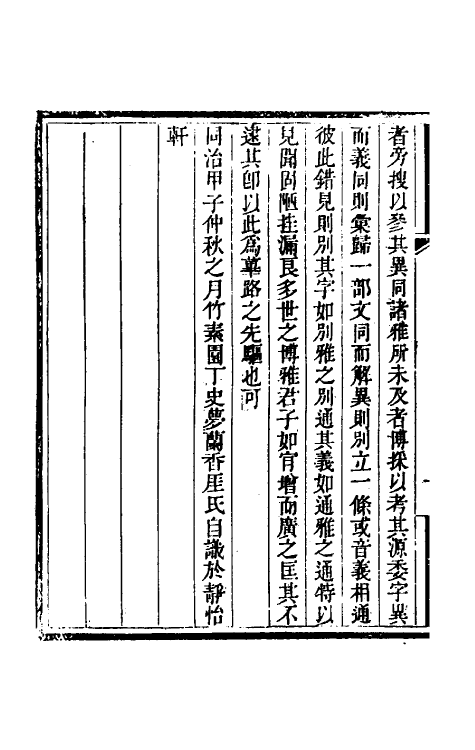 者旁搜以參其異同諸雅所未及者博採以考其源委字異
而義同則彙歸一部文同而解異則別立一條或音義相通
彼此錯見則別其字如別雅之別通其義如通雅之通特以
見聞固陋挂漏良多世之博雅君子如肯增而廣之匡其不
逮其卽以此爲蓽路之先驅也可
同治甲子仲秋之月竹素園丁史夢蘭香厓氏自識於靜怡
軒